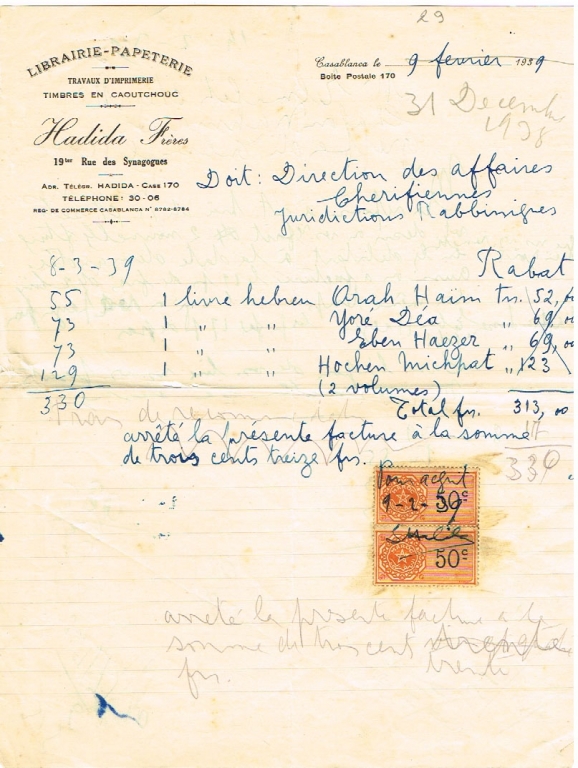 29
LIBRAIRIE-PAPETERIE
TRAVAUX D'IMPRIMERIE
TIMBRES EN CAOUTCHOUC
Hadida Frères
19ter Rue des Synagogues
ADR. TÉLÉGR. HADIDA - CASE 170
TÉLÉPHONE: 30-06
REG. DE COMMERCE CASABLANCA N° 8782-8784
Casablanca le 9 février 1939
Boîte Postale 170
31 Decembre
1938
Doit: Direction des affaires
Cherifiennes
Juridictions Rabbiniques
Rabat
8-3-39
55 1 livre hebreu Orah Haïm frs. 52,00
73 1 " " Yoré Déa " 69,00
73 1 " " Eben Haezer " 69,00
129 1 " " Hochen Michpat " 123
(2 volumes)
330 Total frs. 313,00
Frais de recommandat
17
arrêté la présente facture à la somme
de trois cents treize frs.
330
Pour acquit
9-2-39
50c
50c
arrêté la présente facture a la
somme de trois cent
trente
frs.